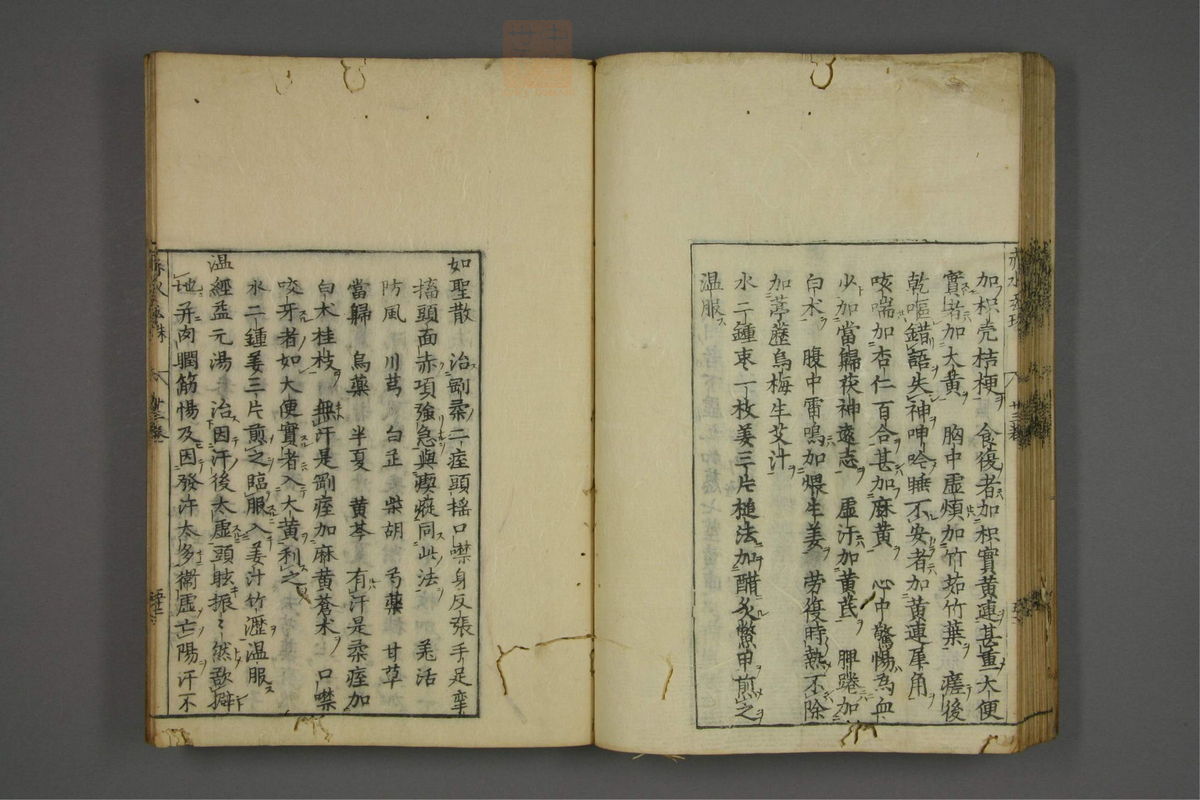 加枳壳桔梗 食復者加枳實黄連甚重大便
實者加大黄 胸中虚煩加竹茹竹葉 瘥後
乾嘔錯語失神呻吟睡不安者加黄連犀角
咳喘加杏仁百合甚加麻黄 心中驚惕為血
少加當歸茯神遠志 虚汗加黄芪 脾踡加
白术 腹中雷鳴加煨生姜 劳復時熱不除
加葶藶烏梅生艾汁
水二鍾枣一枚姜三片槌法加醋炙鱉甲煎之
温服
如聖散 治剛柔二痓頭摇口噤身反張手足挛
搐頭面赤項強急與瘈瘲同此法 羌活
防風 川芎 白芷 柴胡 芍藥 甘草
當歸 烏藥 半夏 黄芩 有汗是柔痓加
白术桂枝 無汗是剛痓加麻黄蒼术 口噤
咬牙者如大便實者入大黄利之
水二鍾姜三片煎之臨服入姜汁竹瀝温服
温經益元湯 治因汗後太虚頭眩振〻然欲擗
地并肉瞤筋惕及因發汗太多衛虚亡陽汗不